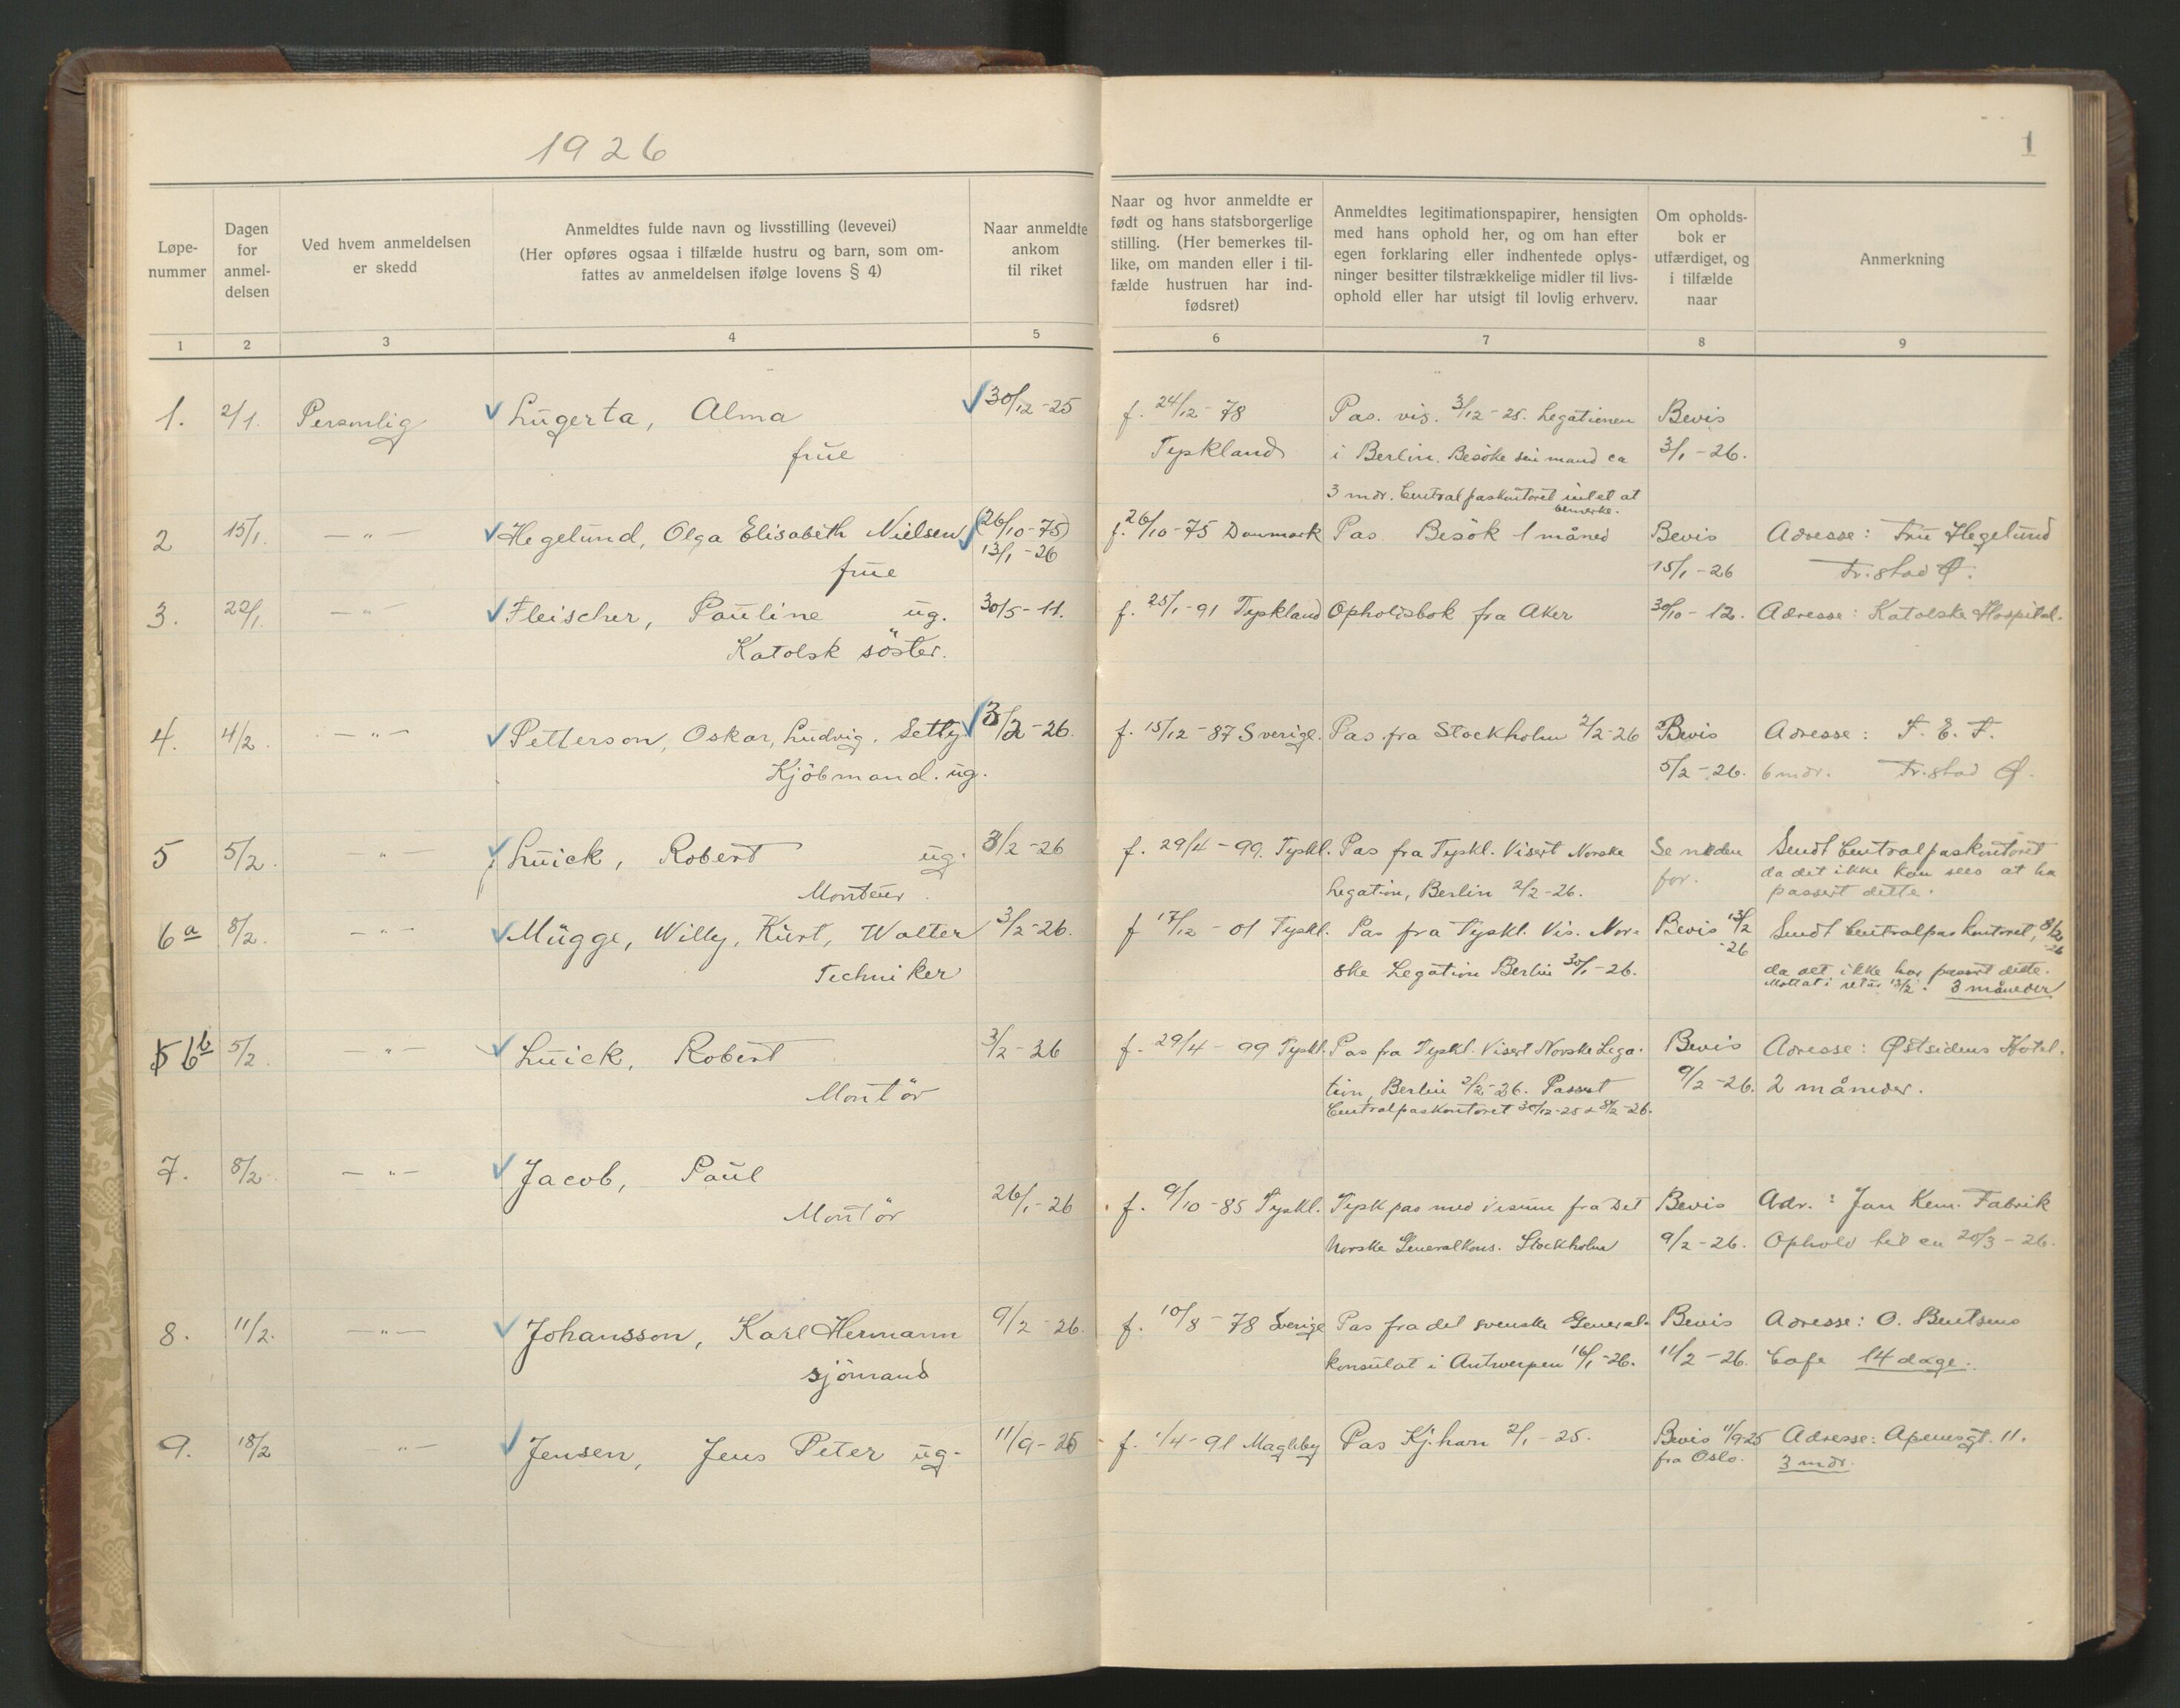 1926
1
Løpe-
nummer
Dagen
for
anmel-
delsen
Ved hvem anmeldelsen
er skedd
Anmeldtes fulde navn og livsstilling (levevei)
(Her opføres ogsaa i tilfælde hustru og barn, som om-
fattes av anmeldelsen ifølge lovens § 4)
Naar anmeldte
ankom
til riket
Naar og hvor anmeldte er
født og hans statsborgerlige
stilling. (Her bemerkes til-
like, om manden eller i til-
fælde hustruen har ind-
fødsret)
Anmeldtes legitimationspapirer, hensigten
med hans ophold her, og om han efter
egen forklaring eller indhentede oplys-
ninger besitter tilstrækkelige midler til livs-
ophold eller har utsigt til lovlig erhverv.
Om opholds-
bok er
utfærdiget, og
i tilfælde
naar
Anmerkning
1 2 3 4 5 6 7 8 9
1. 2/1. Personlig Lugerta, Alma 30/12-25 f. 24/12-78 Pas. vis. 3/12-25. Legationen Bevis
frue Tyskland i Berlin. Besöke sin mand ca 3/1-26.
3 mdr. Centralpaskontoret intet at
bemerke.
2 15/1. — " — Hegelund, Olga Elisabeth Nielsen (26/10-75) f. 26/10-75 Danmark Pas Besök 1 måned Bevis Adresse: Fru Hegelund
frue 13/1-26 15/1-26 Fr.stad Ø.
3. 22/1. — " — Fleischer, Pauline ug. 30/5-11. f. 25/1-91 Tyskland Opholdsbok fra Aker 30/10-12. Adresse: Katolske Hospital.
Katolsk söster.
4. 4/2. — " — Petterson, Oskar, Ludvig, Setty 3/2-26. f. 15/12-87 Sverige. Pas fra Stockholm 2/2-26 Bevis Adresse: F. E. F.
Kjöbmand. ug. 5/2-26. 6 mdr. Fr.stad Ø.
5 5/2. — " — Luick, Robert ug. 3/2-26 f. 29/4-99. Tyskl. Pas fra Tyskl. Visert Norske Se neden Sendt Centralpaskontoret
Monteur. Legation, Berlin 2/2-26. for. da det ikke kan sees at ha
passert dette.
6a 8/2. — " — Mügge, Willy, Kurt, Walter 3/2-26. f 17/12-01 Tyskl. Pas fra Tyskl. Vis. Nor- Bevis 13/2 -26 Sendt Centralpaskontoret, 8/2 -26
Techniker ske Legation Berlin 30/1-26. da det ikke har passert dette.
Mottat i retur 13/2. 3 måneder
5 6b 5/2. — " — Luick, Robert 3/2-26 f. 29/4-99 Tyskl. Pas fra Tyskl. Visert Norske Lega- Bevis Adresse: Østsidens Hotel.
Montör tion, Berlin 2/2-26. Passert 9/2-26. 2 måneder.
Centralpaskontoret 30/12-25 & 8/2-26.
7. 8/2. — " — Jacob, Paul
Montör 26/1-26 f. 9/10-85 Tyskl. Tysk pas med visum fra Det Bevis Adr.: Jan Kem. Fabrik
Norske Generalkons. Stockholm 9/2-26. Ophold til en 20/3-26.
8. 11/2. — " — Johansson, Karl Hermann 9/2-26. f. 10/8-78 Sverige Pas fra det svenske General- Bevis Adresse: O. Bentsens
sjömand konsulat i Antwerpen 16/1-26. 11/2-26. Cafe 14 dage.
9. 18/2 " — Jensen, Jens Peter ug. 11/9-25 f. 1/4-91 Magleby Pas Kj.havn 2/1-25. Bevis 11/9-25 Adresse: Apenesgt. 11.
fra Oslo. 3 mdr.